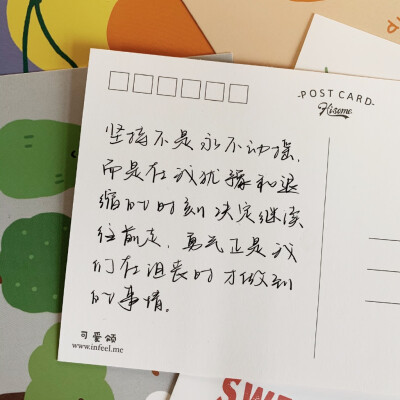 POST CARD
Hisome
坚持不是永不动摇,
而是在我犹豫和退
缩的时刻决定继续
往前走,勇气正是我
们在沮丧时才做到
的事情。
可爱颂
www.infeel.me
SWE